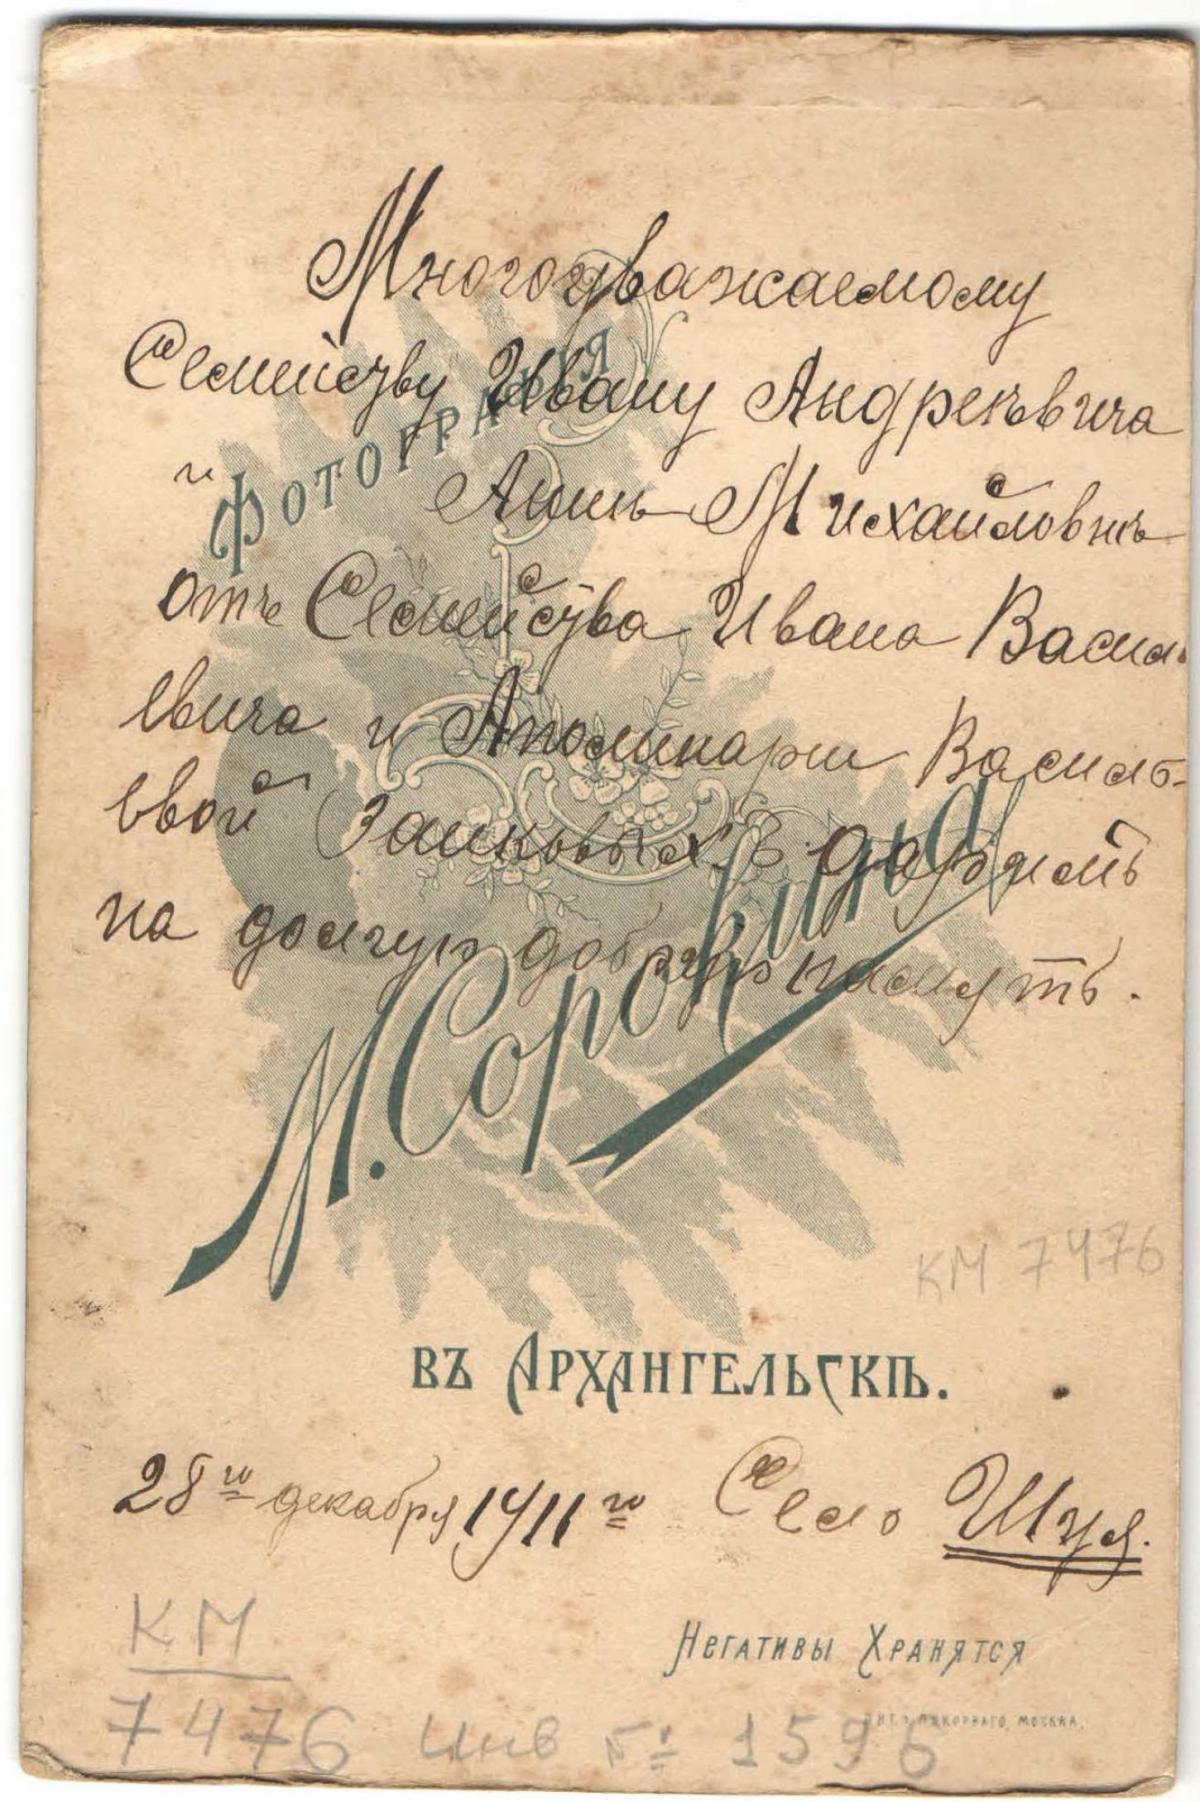 Многоуважаемому
Семейству Ивану Андреевича
и Анне Михайловнѣ
ФОТОГРАФІЯ
отъ Семейства Ивана Василь
евича и Аполинарии Василь-
евой Заиковых. В. даримъ
на долгую добрую память.
М. Сорокина
ВЪ АРХАНГЕЛЬСКѢ.
КМ 7476
28го декабря 1911го Село Шуя.
КМ
НЕГАТИВЫ ХРАНЯТСЯ
МОСКВА.
7476 Инв № 1596